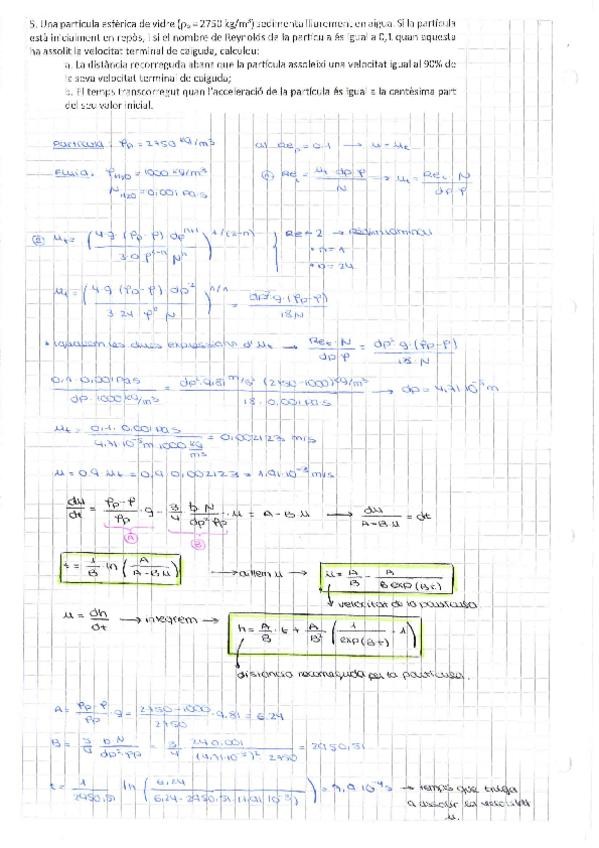 5. Una partícula esfèrica de vidre (ρp = 2750 kg/m³) sedimenta lliurement en aigua. Si la partícula
està inicialment en repòs, i si el nombre de Reynolds de la partícula és igual a 0,1 quan aquesta
ha assolit la velocitat terminal de caiguda, calculeu:
a. La distància recorreguda abans que la partícula assoleixi una velocitat igual al 90% de
la seva velocitat terminal de caiguda;
b. El temps transcorregut quan l'acceleració de la partícula és igual a la centèsima part
del seu valor inicial.
Partícula: ρp = 2750 kg/m³
a) Rep = 0.1 → u = ut
Fluid: ρH2O = 1000 kg/m³
μH2O = 0,001 Pa·s
① Ret = ut dp ρ / μ → ut = Ret · μ / dp ρ
② ut = (4 g (ρp-ρ) dp^(n+1) / 3 b ρ^(1-n) μ^n)^(1/(2-n))
Ret < 2 → Règim laminar
• n = 1
• b = 24
ut = (4 g (ρp-ρ) dp² / 3·24 ρ⁰ μ)^(1/1) = dp² g · (ρp-ρ) / 18 μ
• Igualem les dues expressions d'ut → Ret · μ / dp ρ = dp² g (ρp-ρ) / 18 · μ
0.1 · 0.001 Pa·s / dp · 1000 kg/m³ = dp² · 9,81 m/s² (2750-1000) kg/m³ / 18 · 0.001 Pa·s → dp = 4.71·10⁻⁵ m
ut = 0.1 · 0.001 Pa·s / 4.71·10⁻⁵ m · 1000 kg/m³ = 0,002123 m/s
u = 0.9 ut = 0,9 · 0,002123 = 1.91·10⁻³ m/s
du/dt = (ρp-ρ)/ρp · g - 3/4 b μ / dp² ρp · u = A - B u → du / A-B u = dt
Ⓐ Ⓑ
t = 1/B ln (A / A-B u) → aïllem u → u = A/B - A / B exp(Bt)
velocitat de la partícula
u = dh/dt → integrem → h = A/B · t + A/B² (1/exp(Bt) - 1)
distància recorreguda per la partícula.
A = (ρp-ρ)/ρp · g = (2750-1000)/2750 · 9.81 = 6.24
B = 3/4 b μ / dp² · ρp = 3/4 24·0.001 / (4.71·10⁻⁵)² 2750 = 2950,51
t = 1/2950,51 ln (6,24 / 6.24 - 2950,51 · (1,91·10⁻³)) = 7,9·10⁻⁴ s → temps que triga
a assolir la velocitat
u.